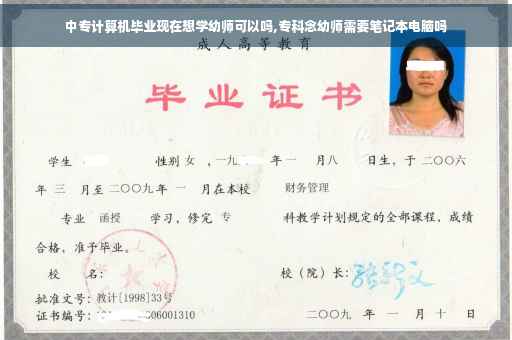 中专计算机毕业现在想学幼师可以吗,专科念幼师需要笔记本电脑吗
成人高等教育
毕业证书
学生 性别 女 , 一九 年 一 月 八 日生, 于 二〇〇六
年 三 月至 二〇〇九 年 一 月在本校 财务管理
专业 函授 学习, 修完 专 科教学计划规定的全部课程, 成绩
合格, 准予毕业。
校 名: 校（院）长:
批准文号: 教计[1998]33号
证书编号: 06001310 二〇〇九 年 一 月 十 日